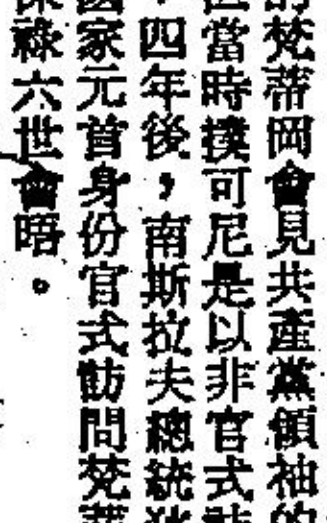 的梵蒂岡會見共產黨領袖的
當時撲可尼是以非官式
四年後，南斯拉夫總統狄
國家元首身份官式訪問梵蒂
祿六世會晤。